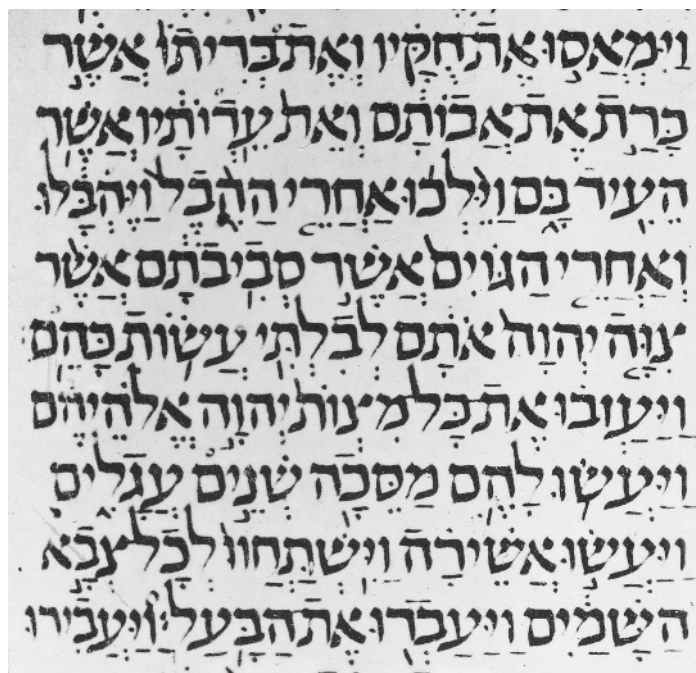 וַיִּמְאֲסוּ אֶת חֻקָּיו וְאֶת בְּרִיתוֹ אֲשֶׁר
כָּרַת אֶת אֲבוֹתָם וְאֵת עֵדְוֹתָיו אֲשֶׁר
הֵעִיד בָּם וַיֵּלְכוּ אַחֲרֵי הַהֶבֶל וַיֶּהְבָּלוּ
וְאַחֲרֵי הַגּוֹיִם אֲשֶׁר סְבִיבֹתָם אֲשֶׁר
צִוָּה יְהוָה אֹתָם לְבִלְתִּי עֲשׂוֹת כָּהֶם
וַיַּעַזְבוּ אֶת כָּל מִצְוֹת יְהוָה אֱלֹהֵיהֶם
וַיַּעֲשׂוּ לָהֶם מַסֵּכָה שְׁנֵים עֲגָלִים
וַיַּעֲשׂוּ אֲשֵׁירָה וַיִּשְׁתַּחֲווּ לְכָל צְבָא
הַשָּׁמַיִם וַיַּעַבְדוּ אֶת הַבָּעַל וַיַּעֲבִירוּ